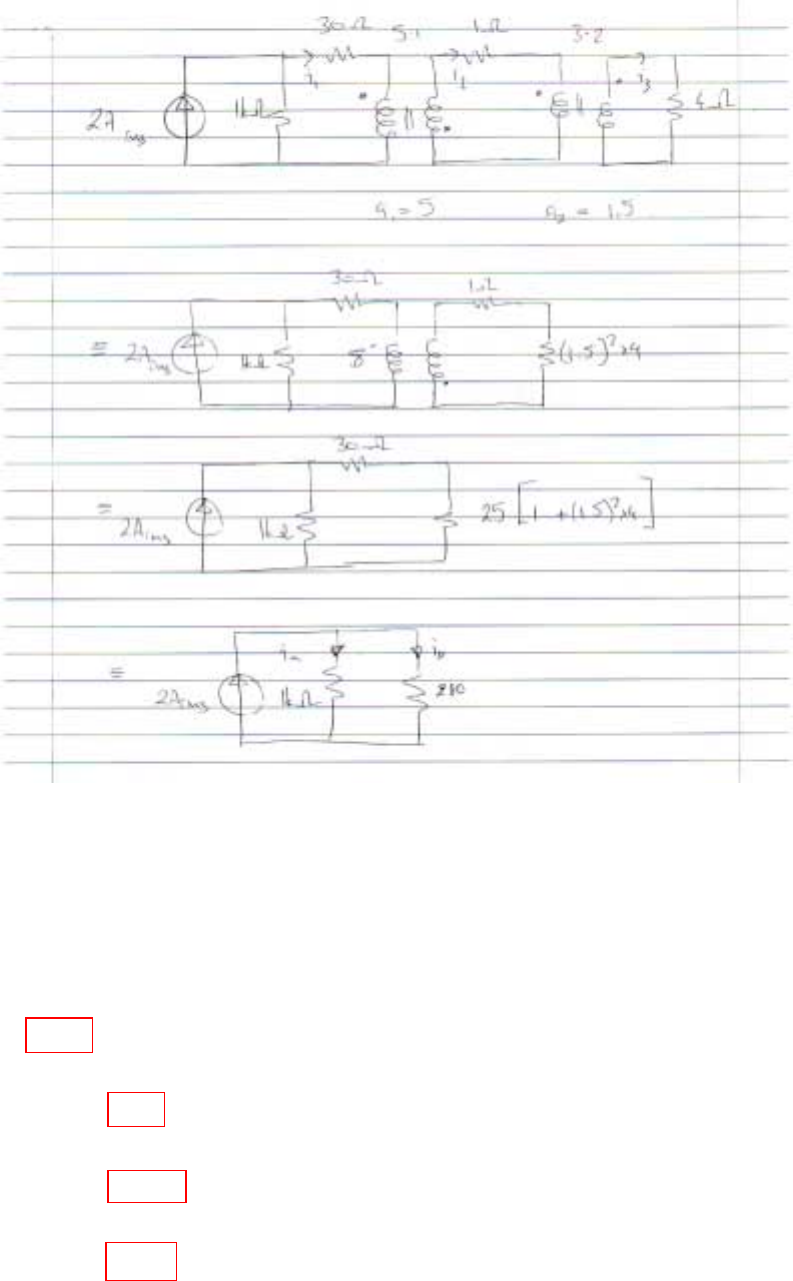 30Ω 5:1 1Ω 3:2
2A rms 1kΩ i₁ i₂ i₃ 4Ω
a₁ = 5 a₂ = 1.5
30Ω 1Ω
≡ 2A rms 1kΩ (1.5)²x4
30Ω
≡ 2A rms 1kΩ 25 [1 + (1.5)²x4]
≡ 2A rms iₐ 1kΩ i_b 280